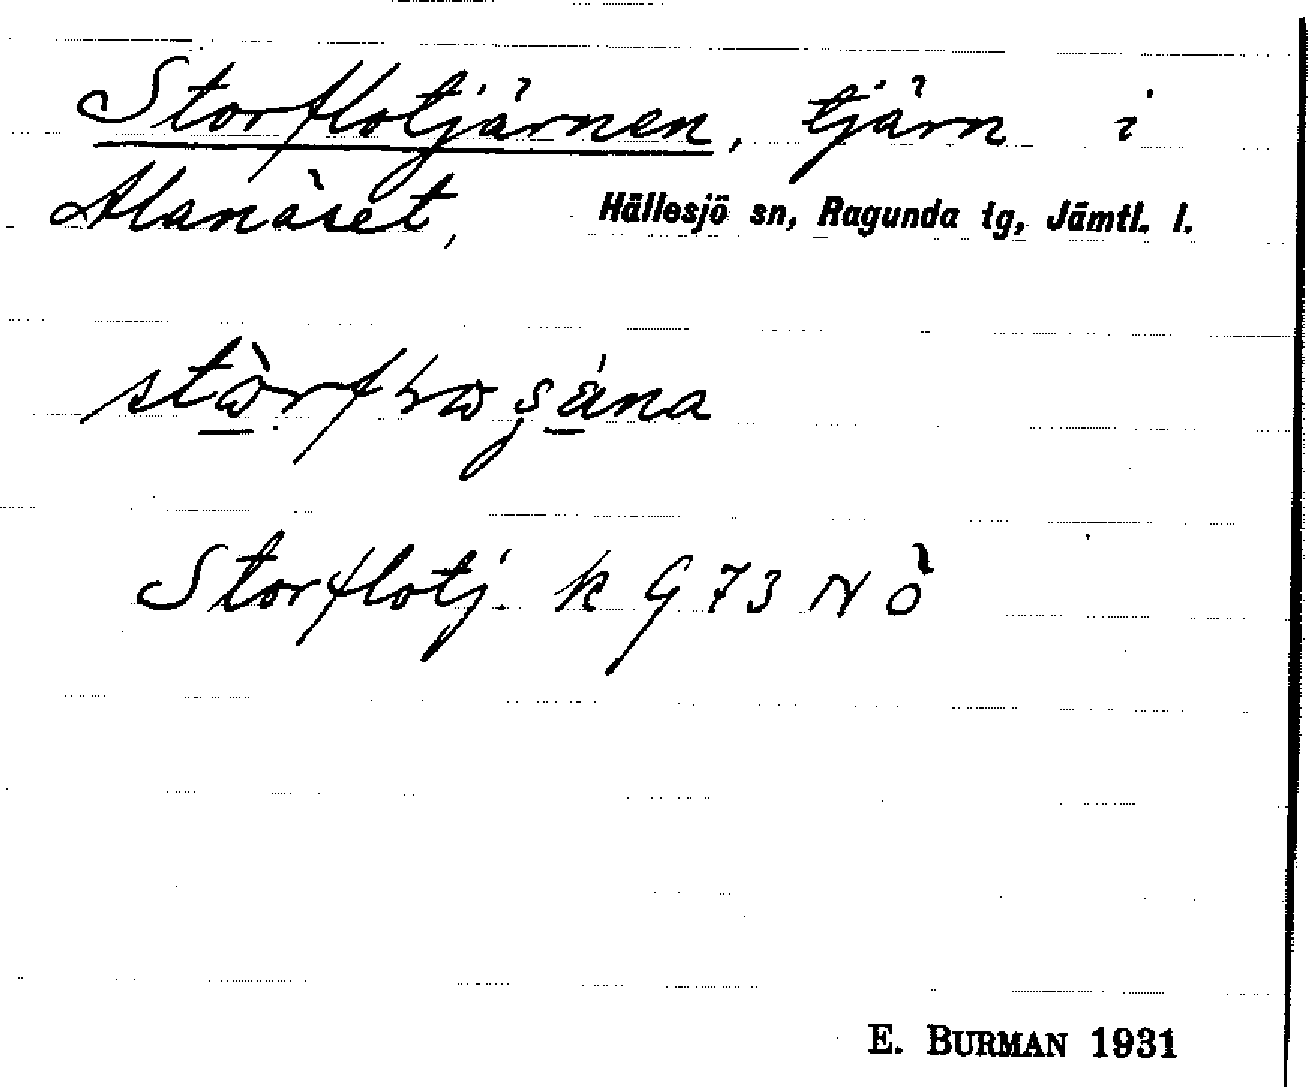 Storflotjärnen, tjärn i
Alanäset, Hällesjö sn, Ragunda tg, Jämtl. l.
Storflotj. k G 73 NÖ
E. BURMAN 1931